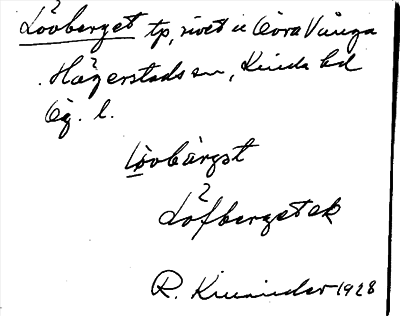 Lövberget tp, rivet u Övra Vånga
Hägerstads sn, Kinda hd
Ög. l.
lövbärgst
Löfberget ek
R. 1928